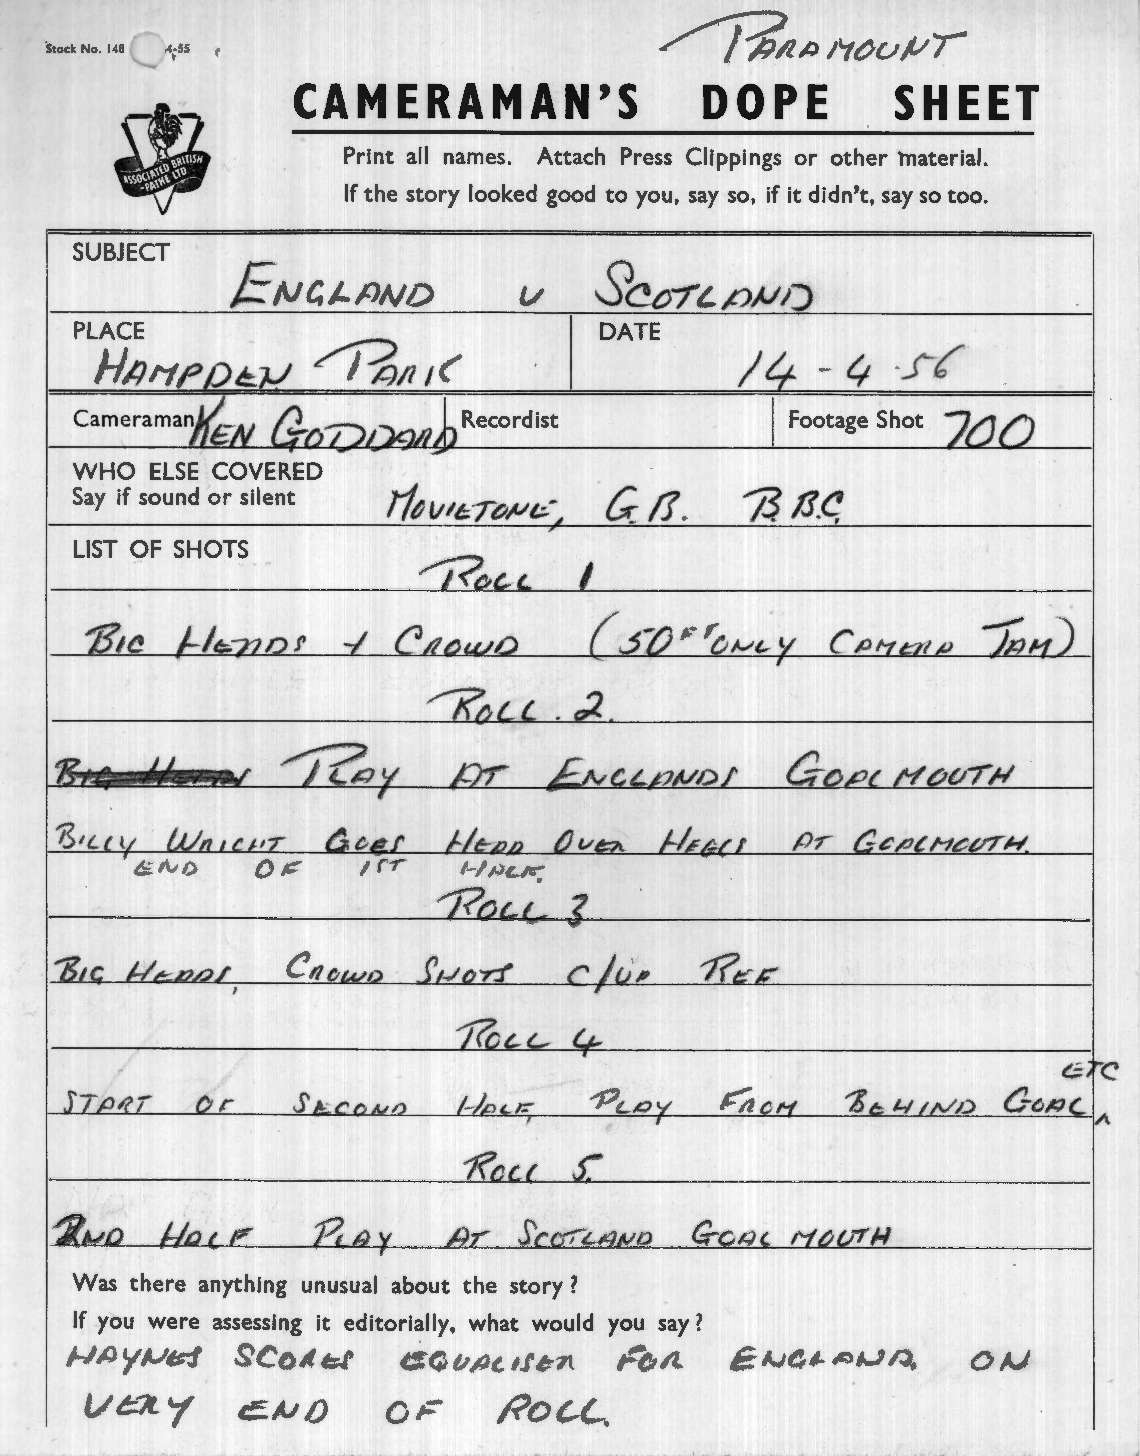 PARAMOUNT
Stock No. 148 4-55
CAMERAMAN'S DOPE SHEET
Print all names. Attach Press Clippings or other material.
If the story looked good to you, say so, if it didn't, say so too.
ASSOCIATED BRITISH
-PATHE LTD
SUBJECT
ENGLAND v SCOTLAND
PLACE
HAMPDEN PARK
DATE
14-4-56
Cameraman KEN GODDARD Recordist Footage Shot 700
WHO ELSE COVERED
Say if sound or silent
MOVIETONE, G.B. B.B.C.
LIST OF SHOTS
ROLL 1
BIG HEADS + CROWD (50FT ONLY CAMERA JAM)
ROLL. 2.
BIG HEADS PLAY AT ENGLANDS GOALMOUTH
BILLY WRIGHT GOES HEAD OVER HEELS AT GOALMOUTH.
END OF 1ST HALF.
ROLL 3
BIG HEADS, CROWD SHOTS C/UP REF
ROLL 4
START OF SECOND HALF, PLAY FROM BEHIND GOAL ETC
ROLL 5.
2ND HALF PLAY AT SCOTLAND GOAL MOUTH
Was there anything unusual about the story?
If you were assessing it editorially, what would you say?
HAYNES SCORES EQUALISER FOR ENGLAND, ON
VERY END OF ROLL.